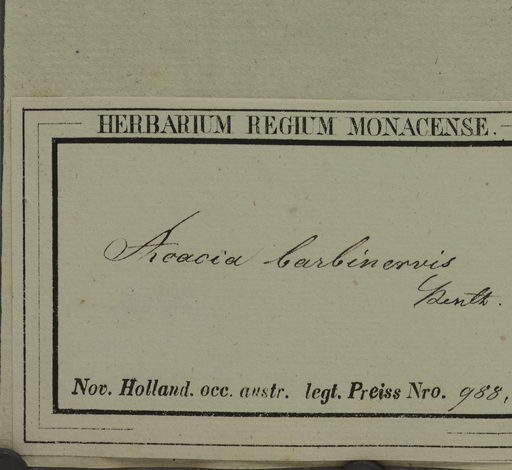 HERBARIUM REGIUM MONACENSE.
Acacia barbinervis
Benth.
Nov. Holland. occ. austr. legt. Preiss Nro. 988.